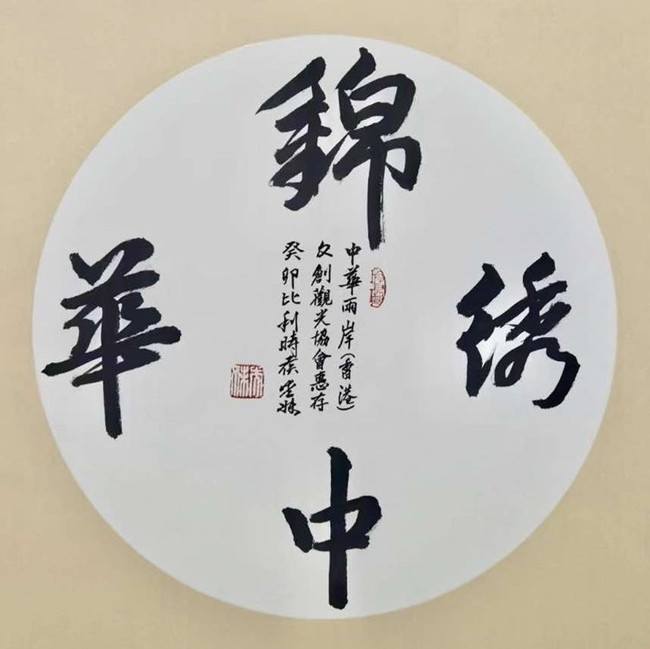 錦
綉
中
華
中華兩岸(香港)
文創觀光協會惠存
癸卯比利時